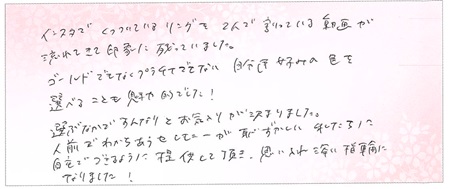 インスタで くっついている リングを 2人で 割っている 動画が
流れてきて 印象に 残っていました。
ゴールドでもなくプラチナでもない 自分達好みの 色を
選べることも 魅力的でした!
選ぶなかですんなりとお気に入りが決まりました。
人前でわかちあうセレモニーが恥ずかしい 私たちに
自宅でできるように 提供して頂き、思い入れ深い 指輪に
なりました!